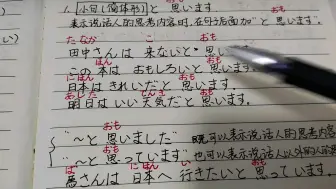 1. [小句(简体形)] と 思います。
表示说话人的思考内容时,在句子后面加"と 思います"。
たなか こ おも
田中さんは 来ないと 思い
ほん おも
この本は おもしろいと 思います。
にほん おも
日本は きれいだと 思います。
あした てんき おも
明日は いい 天気だと 思います。
おも
"~と 思いました" 既可以表示说话人的思考内容
おも
"~と 思っています" 也可以表示说话人以外的人
にほん い おも
さんは 日本へ 行きたいと 思っています